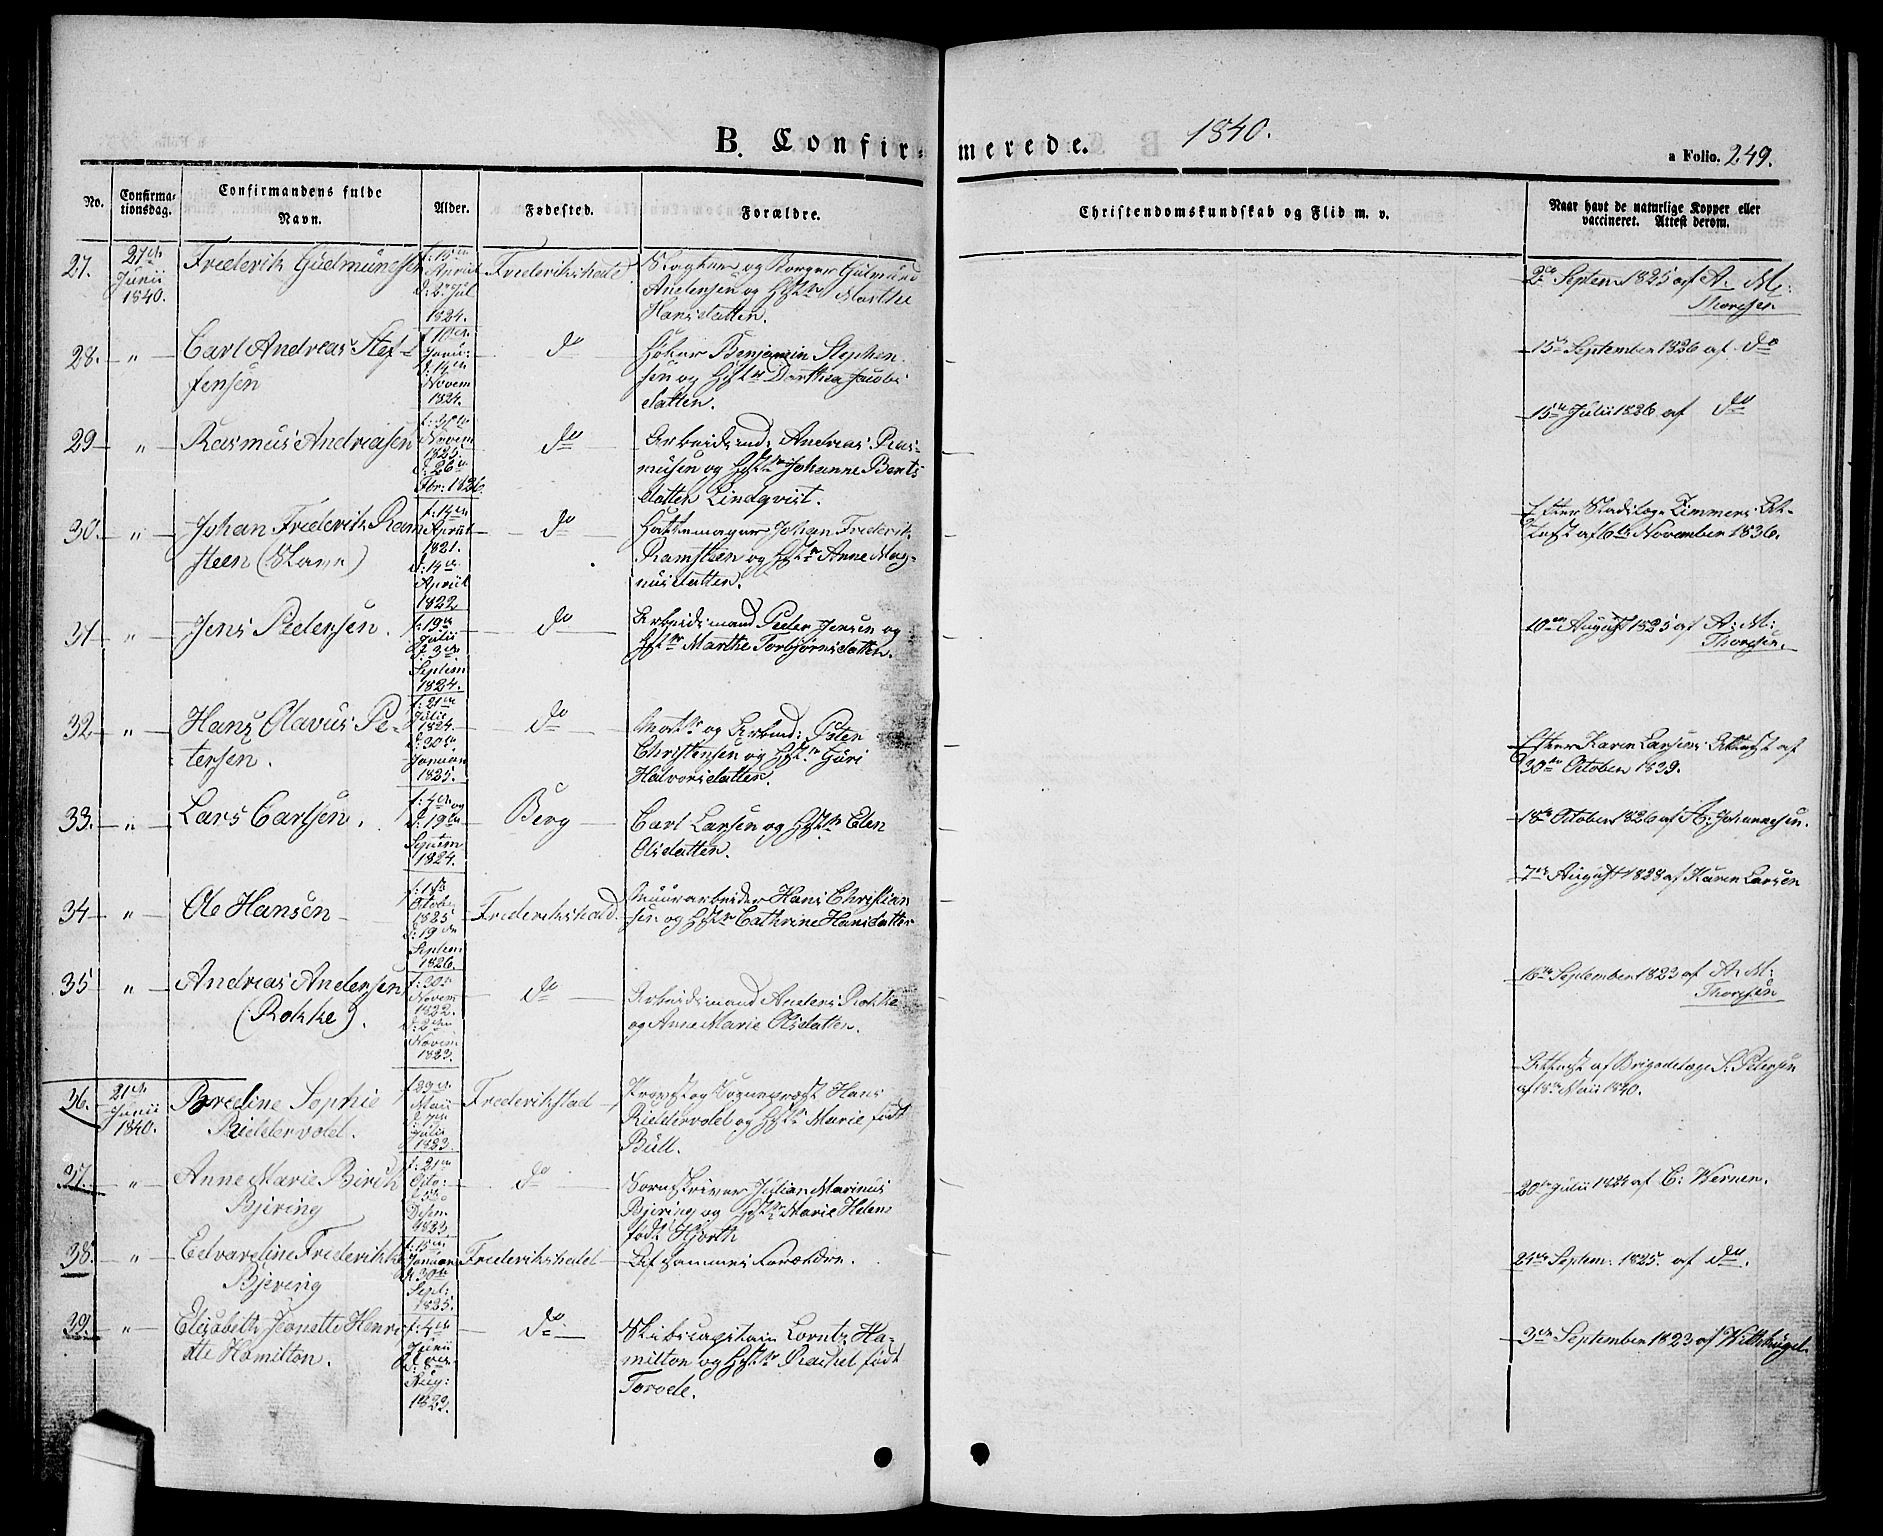 B. Confirmerede. 1840.
a Folio. 249.
No. Confirmationsdag. Confirmandens fulde Navn. Alder. Fødested. Forældre. Christendomskundskab og Flid m. v. Naar havt de naturlige Kopper eller vaccineret. Attest derom.
27. 27de Junii 1840. Frederik Gudmundsen
f: 15de April d: 2den Jul 1824.
Frederikshald
Slagter og Borger Gudmund
Andersen og Hstr Marthe
Hansdatter.
2de Septem 1825 af A. M:
Thoresen
28. " Carl Andreas Stef-
fensen
f: 10de Janu: d: 14de Novem 1824.
do
Høker Benjamin Stephen-
sen og Hstr Dorthea Jacobs
datter.
15de September 1826 af do
29 " Rasmus Andreasen
Novem 1825. d: 26de Fbr: 1826.
do
Arbeidsmd: Andreas Ras-
musen og Hstr Johanne Bents
datter Lindqvist.
15de Julii 1826 af do
30. " Johan Frederik Ram
steen (Slave)
f: 14de April 1821. d: 14de April 1822
do
Hattemager Johan Frederik
Ramsteen og Hstr Anne Mag-
nusdatter.
Efter Stadslæge Zimmers At-
test af 6te November 1836.
31 " Jens Pedersen.
f: 19de Julii d: 3de Septem 1824.
do
Arbeidsmand Peder Jensen og
Hstr Marthe Torbjørnsdatter.
10de August 1825 af A: M:
Thoresen.
32 " Hans Olavus Pe-
tersen.
f: 21de Julii 1824. d: 30te Januar 1825.
do
og Arbmd: Peter
Christensen og Hstr Guri
Halvorsdatter.
Efter Karen Larsens Attest af
30te October 1839.
33. " Lars Carlsen.
f: 4de og d: 19de Septem 1824.
Berg
Carl Larsen og Hstr Elen
Olsdatter.
18de October 1826 af A: Johannesen.
34 " Ole Hansen
f: 1ste Octobe 1825 d: 19de Septem 1826.
Frederikshald.
Muurarbeider Hans Christian
sen og Hstr Cathrine Hansdatter
7de August 1828 af Karen Larsen
35 " Andreas Andersen
(Rokke).
f: 30te Novem 1822. d: 2den Novem 1823.
do
Arbeidsmand Anders Rokke
og Anne Marie Olsdatter.
18de September 1823 af A: M:
Thoresen
36. 21de Junii 1840. Bredine Sophie
Riddervold.
f: 29de Maii d: Julii 1823.
Frederikstad
Provst og Sognepræst Hans
Riddervold og Hstr Marie født
Bull.
Attest af Brigadelæge S: Petersen
af 18de Maii 1840.
37. " Anne Marie Birch
Bjering
f: 21de Octo: d: Desem 1823.
do
Sorenskriver Julian Marinus
Bjering og Hstr Marie Helene
født Hjorth
20de Julii 1824 af C: Werner.
38. " Edvardine Frederikke
Bjering
f: 15de Januar d: 30te Sept: 1825.
Frederikshald
Af sammes Forældre.
24de Septem: 1825. af do.
39. " Elisabeth Jeanette Henri-
ette Hamilton.
f: 4de Junii d: 8de Aug: 1823.
do
Skibscapitain Lorntz Ha-
milton og Hstr Rachel født
Torvde.
3de September 1823 af Withhügel